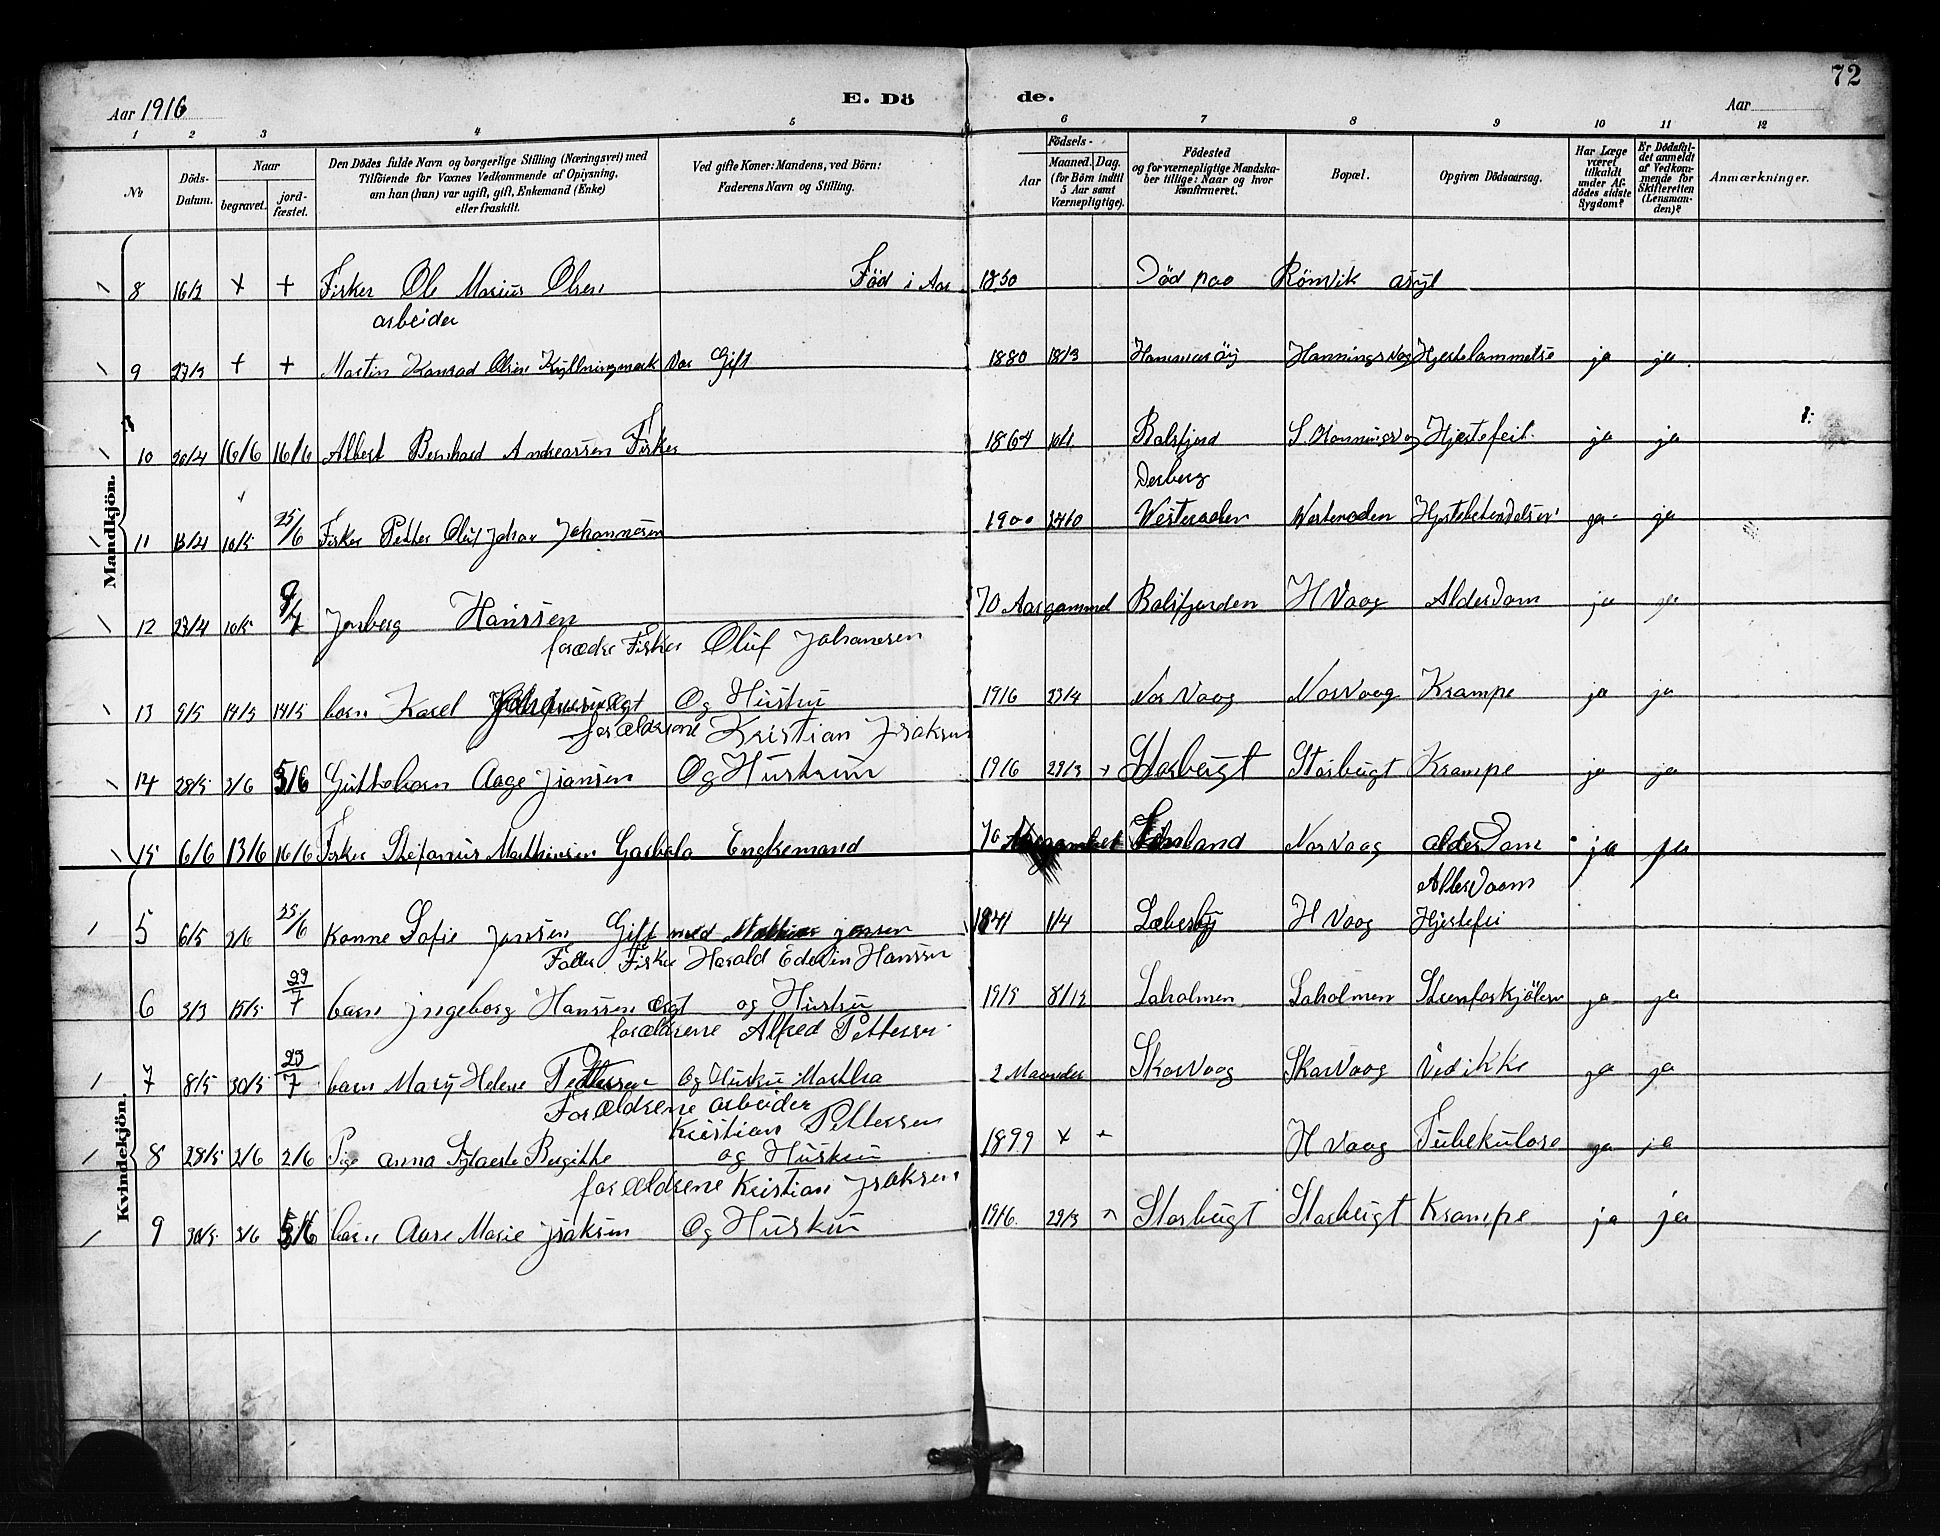 72
Aar 1916 E. Dö de. Aar
1 2 3 4 5 6 7 8 9 10 11 12
No
Döds-Datum.
Naar
begravet.
jord-fæstet.
Den Dödes fulde Navn og borgerlige Stilling (Næringsvei) med
Tilföiende for Voxnes Vedkommende af Oplysning,
om han (hun) var ugift, gift, Enkemand (Enke)
eller fraskilt.
Ved gifte Koner: Mandens, ved Börn:
Faderens Navn og Stilling.
Födsels-
Aar
Maaned. Dag.
(for Börn indtil
5 Aar samt
Værnepligtige).
Födested
og for værnepligtige Mandska-
ber tillige: Naar og hvor
konfirmeret.
Bopæl.
Opgiven Dödsaarsag.
Har Læge
været
tilkaldt
under Af-
dödes sidste
Sygdom?
Er Dödsfal-
det anmeldt
af Vedkom-
mende for
Skifteretten
(Lensman-
den)?
Anmærkninger.
Mandkjön.
8 16/2 + + Fisker Ole Marius Olsen Född i Aar 1850 Död paa Rönvik asyl
arbeider
9 27/3 + + Martin Konrad Olsen Var Gift 1880 18/3 Hammeröy Honningsvog Hjertelammelse ja ja
10 20/4 16/6 16/6 Albert Bernhard Andreassen Fisker 1864 10/1 Balsfjord S. Honningsvog Hjertefeil ja ja
11 13/4 10/5 25/6 Fisker Petter Oluf Johannesen 1900 24/10 Vesteraalen Vesteraalen ja ja
12 23/4 10/5 9/7 Hanssen 70 Aar gammel Balsfjorden H Vaag Alderdom ja ja
forældre Fisker Oluf Johansen
13 9/5 14/5 14/5 barn Karel Ægt Og Hustru 1916 23/4 Nor Vaag Nor Vaag Krampe ja ja
forældrene Kristian Isaksen
14 28/5 3/6 5/6 Guttebarn Aage Isansen Og Hustrun 1916 29/3 + Storbugt Storbugt Krampe ja ja
15 6/6 13/6 16/6 Fisker Stefanus Mathisen Garbala Engkemand 70 Aar gammel Nor Vaag alderdom ja ja
Kvindekjön.
Alderdoom
5 6/5 2/6 25/6 Konne Sofie Jansen Gift med Mathias jensen 1841 1/4 Lebesby H Vaag Hjertefei
Fader Fisker Harald Edevin Hanssen
6 3/3 15/5 29/7 barn jngeborg Hanssen Ægt og Hustru 1915 8/12 Laholmen Laholmen ja ja
forældrene Alfred Pettersen
7 8/5 30/5 29/7 barn Mary Helene Pettersen Og Hustru Martha 2 Maander SkarVaag SkarVaag Vedikke ja ja
Forældrene arbeider
Kristian Pettersen
8 28/5 2/6 2/6 Pige anna Bergitte og Hustru 1899 + + H Vaag Tubekulose ja ja
forældrene Kristian Isaksen
9 30/5 3/6 5/6 barn Aase Marie jsaksen Og Hustru 1916 29/3 Storbugt Storbugt Krampe ja ja